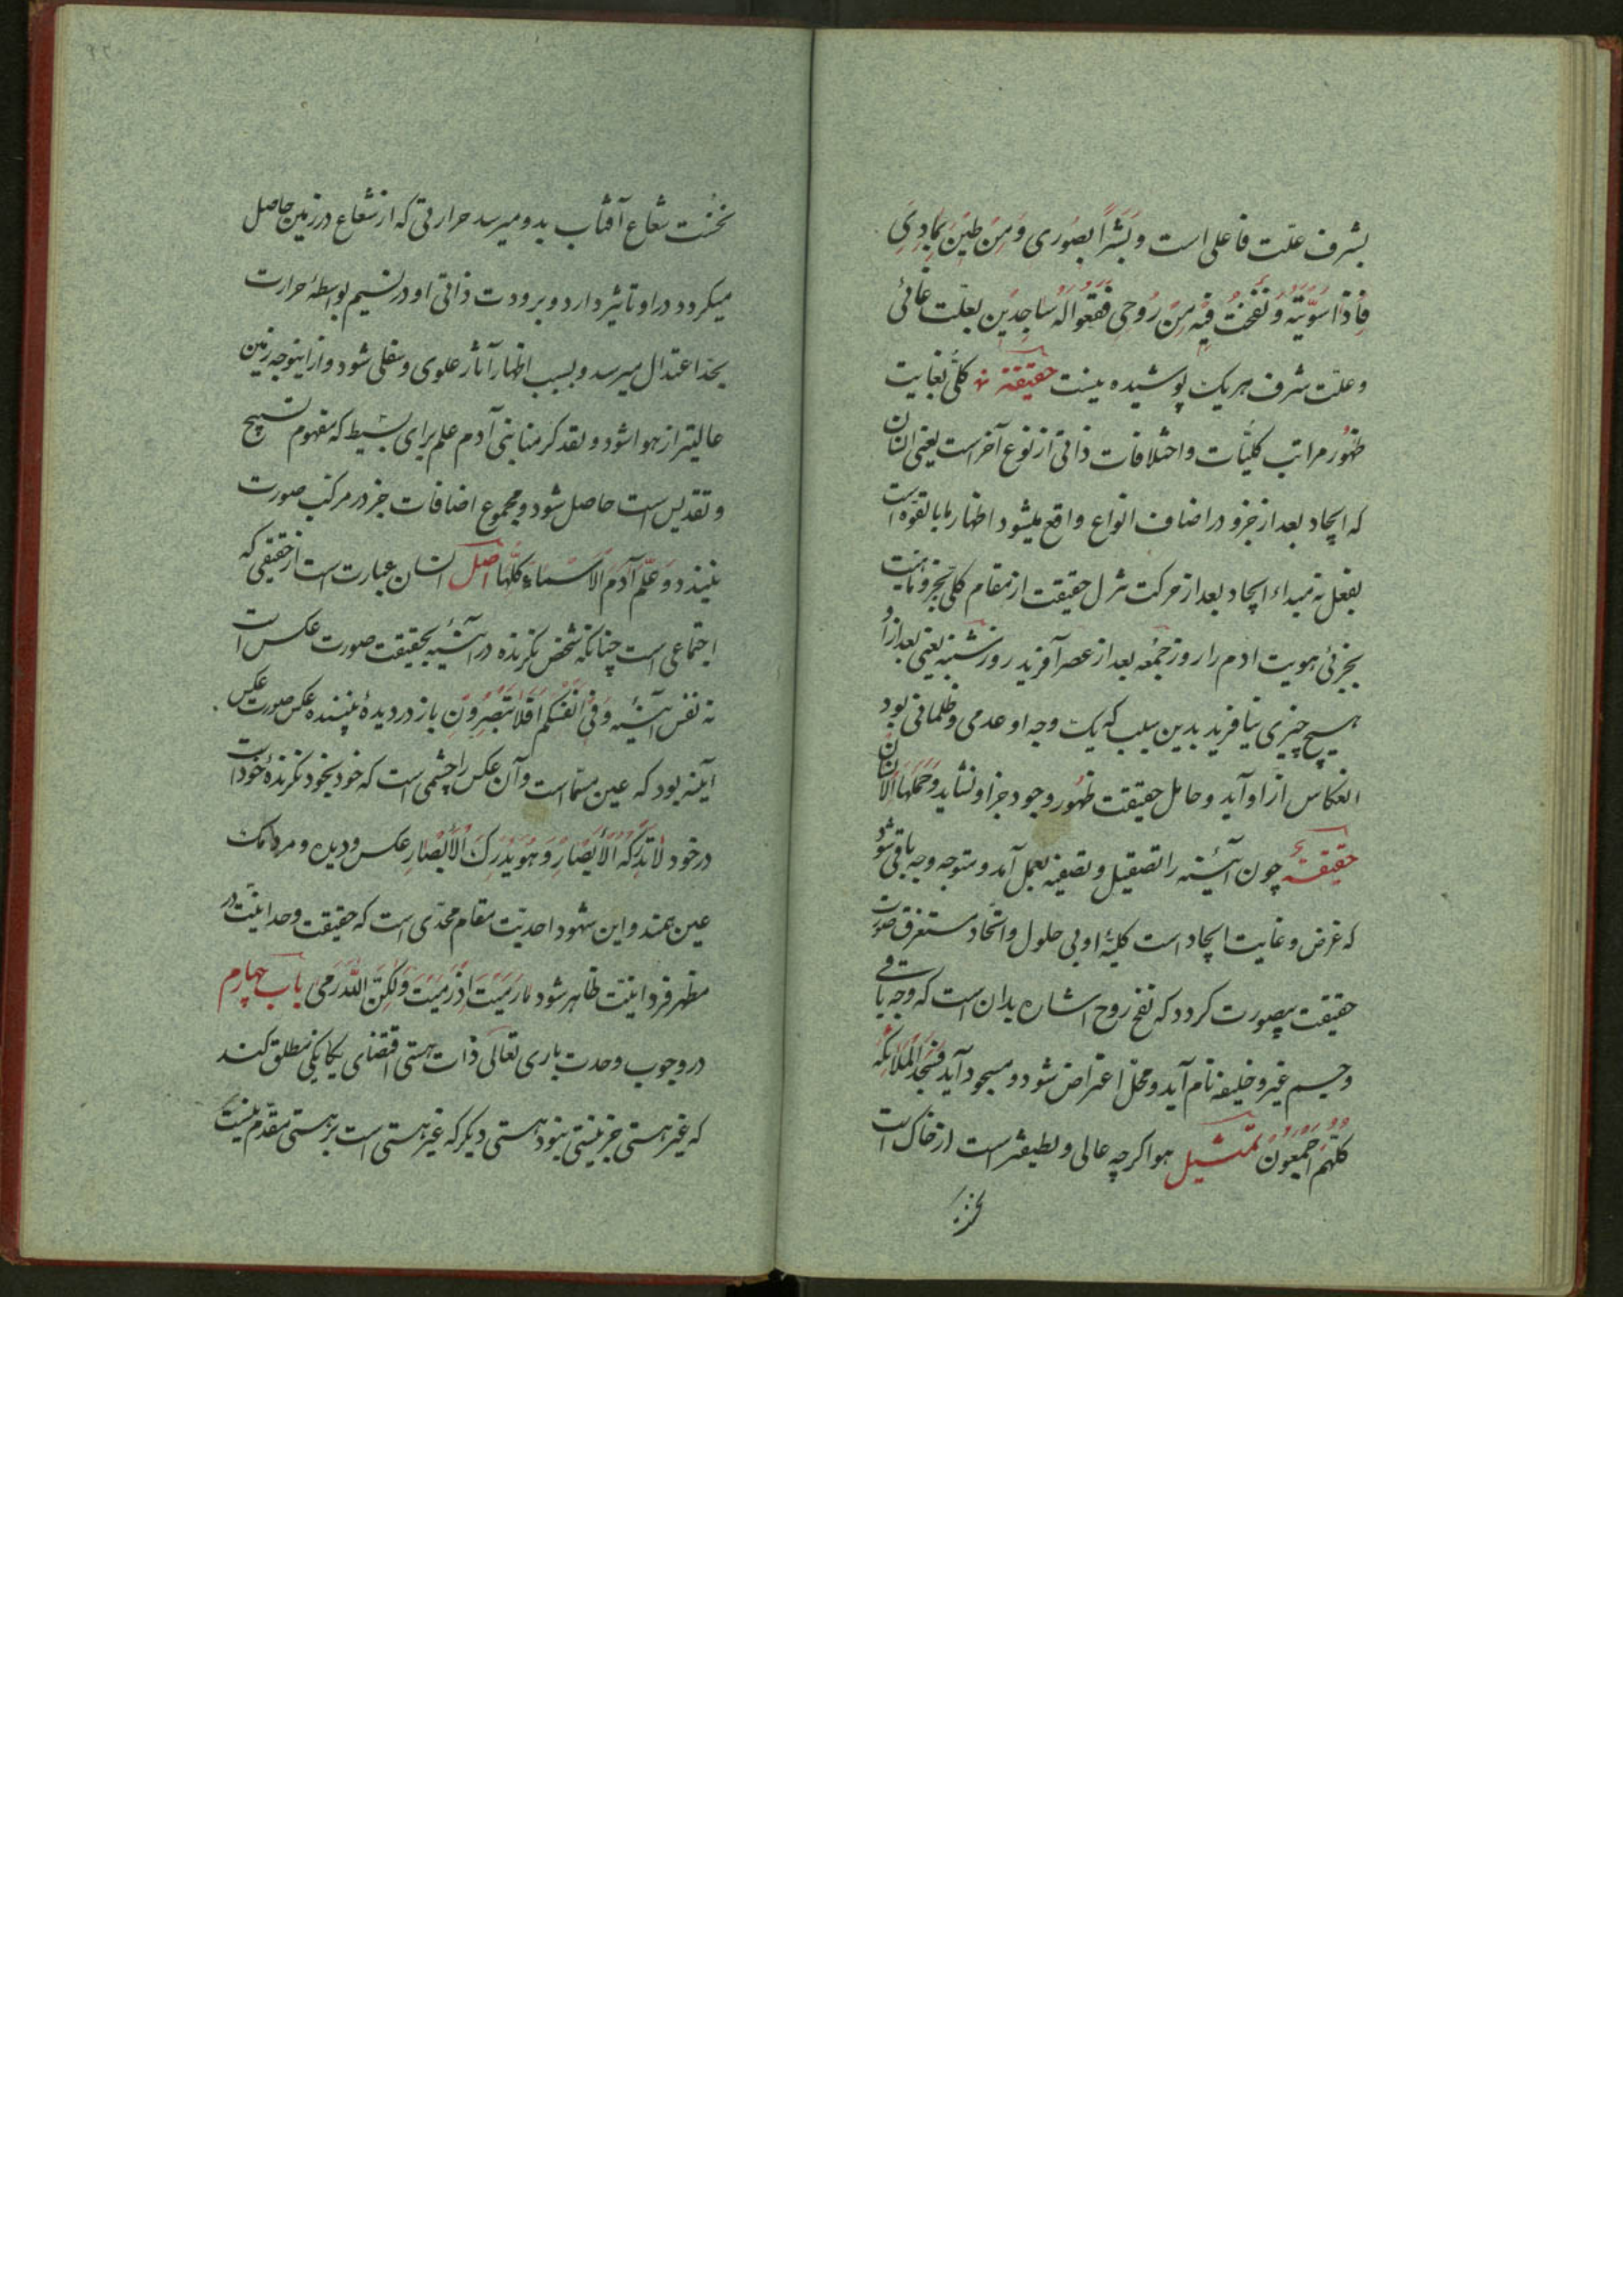 بشرف علّت فاعلی است و بَشَراً بصُوری وَ مِن طین بمادی
فَاِذا سَوَّیتُه وَ نَفَختُ فیه مِن رُوحی فَقَعُوا لَهُ ساجِدین بعلّت غائی
و علّت شرف هر یک پوشیده نیست حقیقة کلّی بغایت
ظهُور مراتب کلیّات و اختلافات ذاتی از نوع آخر است یعنی انسان
که ایجاد بعد از جزو در اضاف انواع واقع میشود اظهار ما بالقوّه است
بفعل نه مبداء ایجاد بعد از حرکت تنزل حقیقت از مقام کلی بجزو
بجزئی هویت ادم را روز جمُعه بعد از عصر آفرید روز شنبه یعنی بعد از او
هیچ چیزی نیافرید بدین سبب که یک وجه او عدمی و ظلمانی بود
انعکاس از او آید و حامل حقیقت ظهُور وجود جز او نشاید وَ حَمَلَهَا الاِنسان
حقیقة چون آئینه را تصقیل و تصفیه بعمل آمد و متوجه وجه باقی شود
که غرض و غایت ایجاد است کلیهٔ او بی حلول و اتّحاد مستغرق صورت
حقیقت بیصورت گردد که نفخ روح اشاره بدان است که وجه باقی
و جسم غیر و خلیفه نام آید و محل اعتراض شود و مسجود آید فَسَجَدَ المَلائکَةُ
کُلُّهُم اَجمَعُون تمثیل هوا اگرچه عالی و لطیفتر است از خاک است
نخست شعاع آفتاب بدو میرسد حرارتی که از شعاع در زمین حاصل
میگردد در او تأثیر دارد و برودت ذاتی او در نسیم بواسطهٔ حرارت
بحدّ اعتدال میرسد و بسبب اظهار آثار علوی و سفلی شود و از اینوجه زمین
عالیتر از هوا شود و لقد کرمنا بنی آدم علم برای بسیط که مفهوم تسبیح
و تقدیس است حاصل شود و مجموع اضافات جز در مرکب صورت
نبندد وَ عَلَّمَ آدَمَ الاَسماءَ کُلَّها اصل انسان عبارت است از حقیقی که
اجتماعی است چنانکه شخص نگرنده در آئینه بحقیقت صورت عکس است
نه نفس آئینه وَ فی اَنفُسِکُم اَفَلا تُبصِرُونَ باز در دیدهٔ بیننده عکس صورت عکس
آینه بود که عین مسمّا است و آن عکس را چشمی است که خود بخود نگرندهٔ خود است
در خود لا تُدرِکُهُ الاَبصار وَ هُوَ یُدرِکُ الاَبصار عکس و دیده و مردمک
عین همند و این شهود احدیّت مقام محمّدی است که حقیقت وحدانیّت در
مظهر فردانیّت ظاهر شود ما رَمَیتَ اِذ رَمَیتَ وَلکِنَّ اللهَ رَمی باب چهارم
در وجوب وحدت باری تعالی ذات هستی اقتضای یگانگی مطلق کند
که غیر هستی جز نیستی نبود هستی دیگر که غیر هستی است بر هستی مقدّم نیست